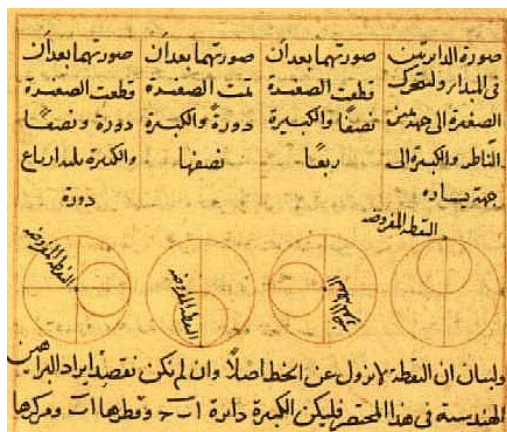 صورة الدايرتين
فى المبدا ولتتحرك
الصغيرة الى جهة يمين
الناظر والكبيرة الى
جهة يساره
صورتهما بعد ان
قطعت الصغيرة
نصفًا والكبيرة
ربعًا
صورتهما بعد ان
تمت الصغيرة
دورةً والكبيرة
نصفها
صورتهما بعد ان
قطعت الصغيرة
دورة ونصفًا
والكبيرة ثلثة ارباع
دورة
النقطة المفروضه
النقطة المفروضه
النقطة المفروضه
ولبيان ان النقطة لا تزول عن الخط اصلاً وان لم نكن نقصد ايراد البراهين
الهندسية فى هذا المختصر فليكن الكبيرة دائرة اب وقطرها اب ومركزها